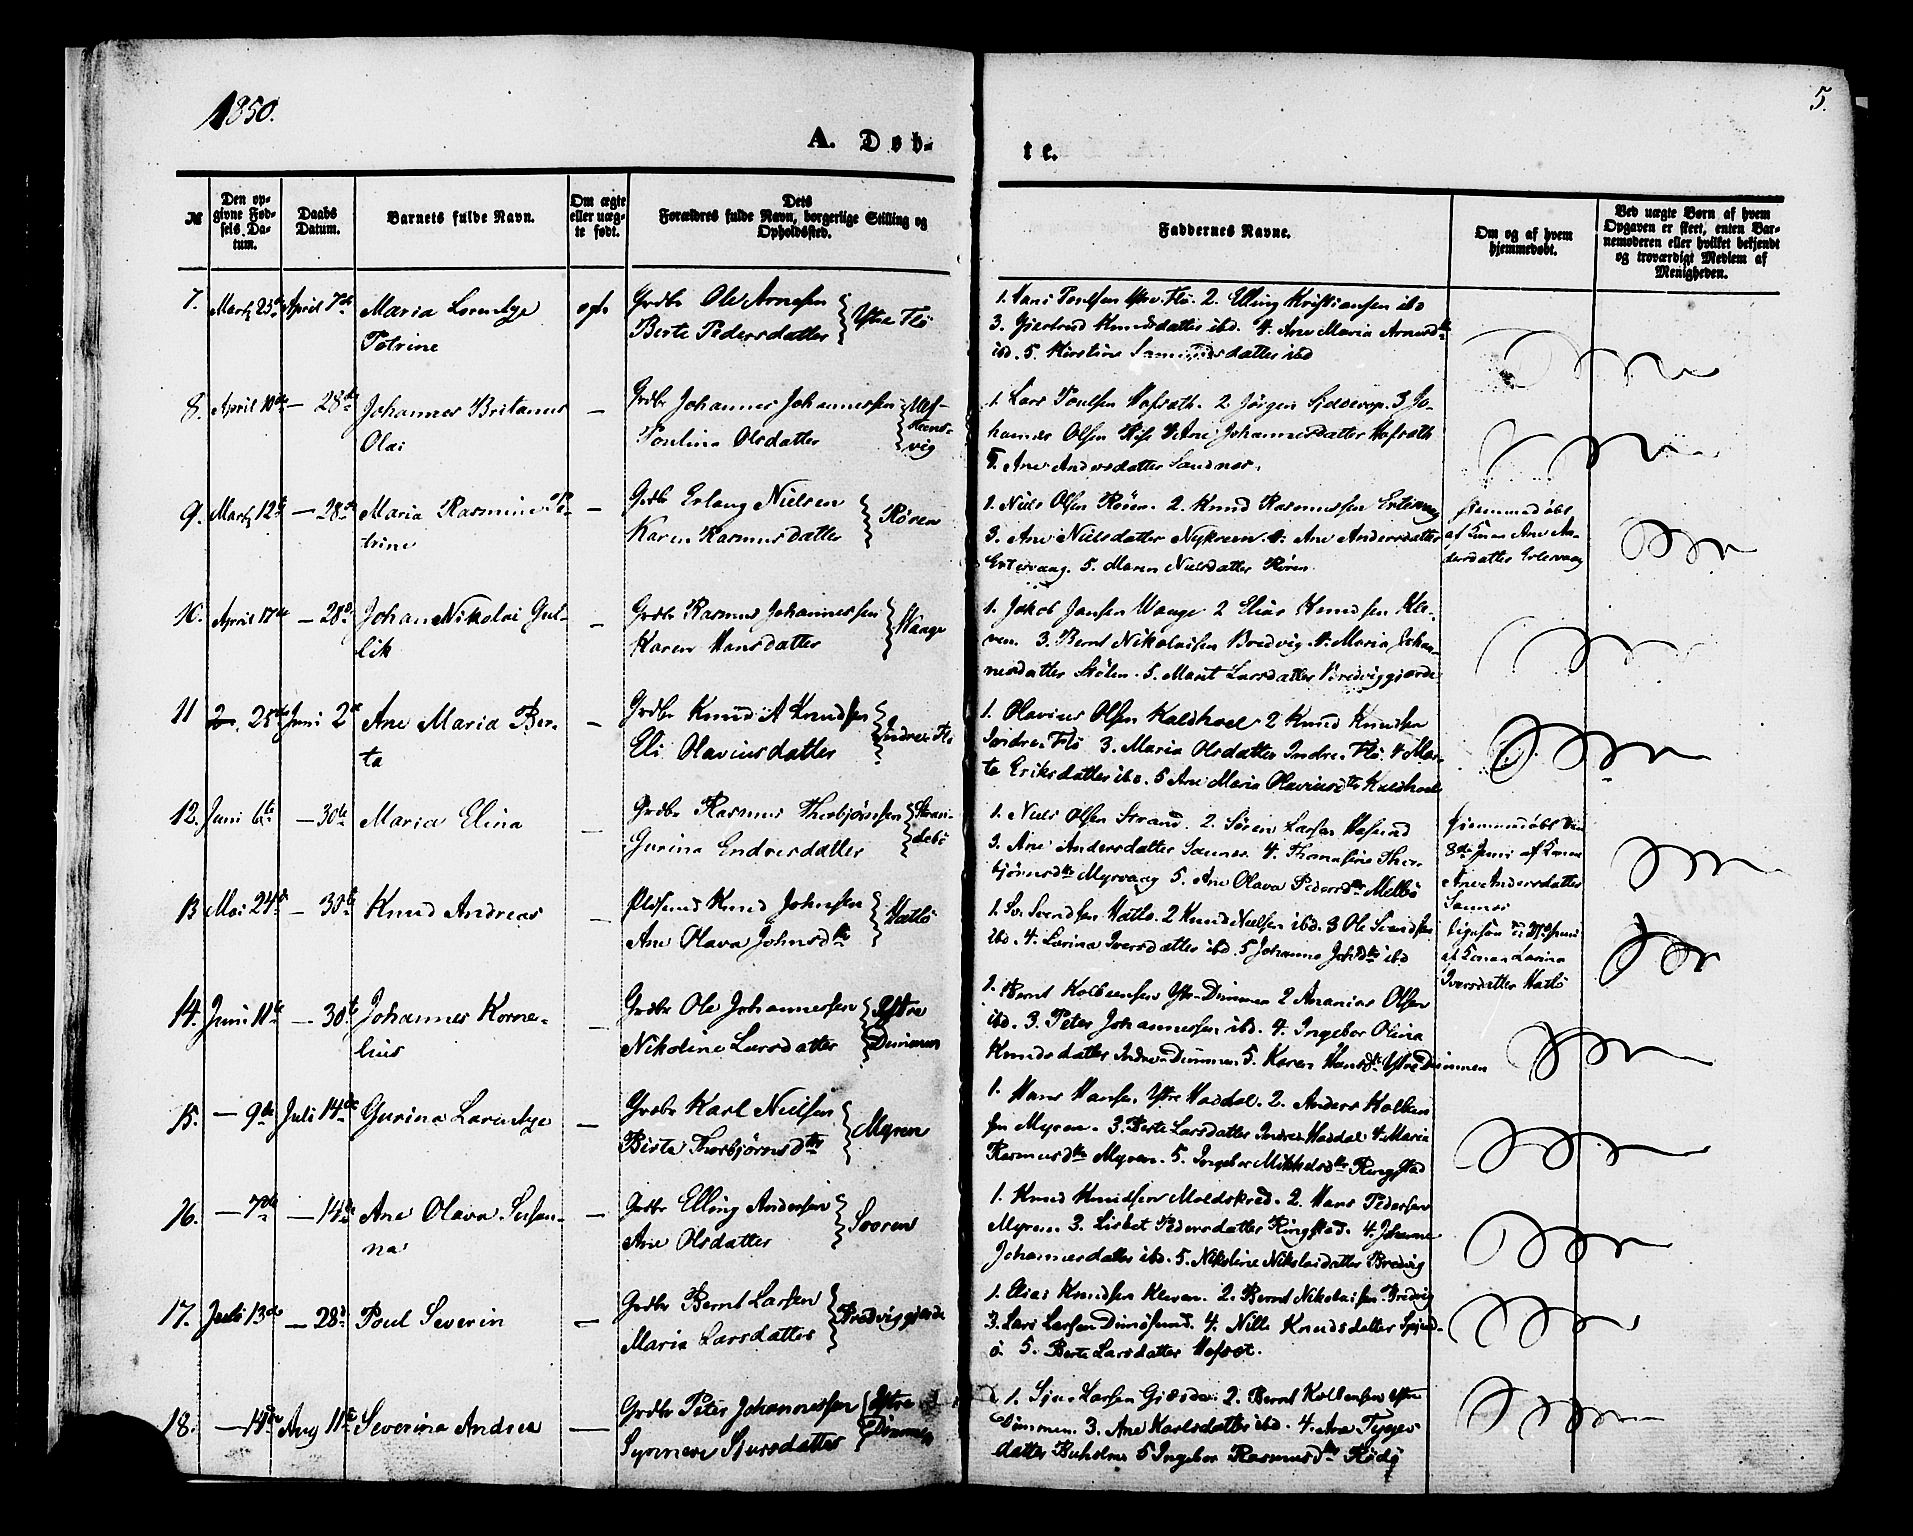 1850.
5.
A. Døb-
te.
№
Den op-
givne Fød-
sels Da-
tum.
Daabs
Datum.
Barnets fulde Navn.
Om ægte
eller uæg-
te født.
Dets
Forældres fulde Navn, borgerlige Stilling og
Opholdssted.
Faddernes Navne.
Om og af hvem
hjemmedøbt.
Ved uægte Børn af hvem
Opgaven er skeet, enten Bar-
nemoderen eller hvilket bekjendt
og troværdigt Medlem af
Menigheden.
7. April 7de Maria Lorentze
Petrine
Grdbr Ole Arnesen
Berte Pedersdatter
Ytre Flø
2. Elling Kristiansen ibd
3. Gjertrud Knudsdatter ibd. 4. Ane Maria
ibd. 5. Kirstine
8. April 10de — 28de Johannes Britanus
Olai
—
Grdbr Johannes Johannessen
Poulina Olsdatter
Ulf-
steens-
vig
1. Lars Poulsen 2. Jörgen 3 Jo-
hannes Olsen 4. Ane Johannesdatter
5. Ane Andersdatter Saudnes.
9. 12te — 28de Maria Rasmine Pe-
trine
—
Grdbr Erlang Nielsen
Karen Rasmusdatter
Røren
1. Niels Olsen Røren. 2. Knud Rasmussen
3. Ane Nielsdatter 4. Ane Andersdatter
5. Maren Nielsdatter Røren
af Ane An-
dersdatter
10. April 17de — 28de Johan Nikolai Gul-
lik
—
Grdbr Rasmus Johannessen
Karen Hansdatter
1. Jakob Jansen 2 Elias Knudsen Kle-
ven. 3. Bernt Nikolaisen Bredvig. 4. Maria Johan-
nesdatter Stølen. 5. Marit Larsdatter Bredviggjerde
11 25de Juni 2den Ane Maria Ber-
ta
—
Grdbr Knud A Knudsen
Eli Olaviusdatter
Indre Flø
1. Olavius Olsen Kaldhoel 2 Knud Knudsen
Indre Flø 3. Maria Olsdatter Indre Flø. 4. Mar-
te Eriksdatter ibd. 5 Ane Maria Kaldhoel
12. Juni 6te — 30te Maria Elina
—
Grdbr Rasmus Thorbjørnsen
Gurina Endresdatter
Stran-
debø
1. Niels Olsen Strand. 2. Sören Larsen Hasund
3. Ane Andersdatter Saunes. 4. Thomasine Thor-
bjørnsdtr Myrvaag 5. Ane Olava Pedersdtr Melbö
8de Juni af
Ane Andersdatter
Saunes
13 Mai 24de — 30te Knud Andreas
—
Knud Johnsen
Ane Olava Johnsdtr
Hatlø
1. Sv. Svendsen 2 Knud Nielsen ibd. 3 Ole Svendsen
ibd. 4. Lovina Iversdatter ibd. 5 Johanne ibd
Juni
af
Iversdatter Hatlø
14. Juni 11te — 30te Johannes Korne-
lius
—
Grdbr Ole Johannessen
Nikoline Larsdatter
Ytre
Dimmen
1. Bernt Kolbensen Ytre Dimmen 2 Ananias Olsen
ibd. 3. Peter Johannessen ibd. 4. Ingebor Olina
Knudsdatter Indre Dimmen 5. Karen Hansdtr Ytre Dimmen
15. — 9de Juli 14de Gurina Lorentze
—
Grdbr Karl Nielsen
Berte Thorbjørnsdtr
Myren
1. Hans Hansen Ytre Haddal. 2. Anders Kolben-
sen Myren. 3. Berte Larsdatter Indre Haddal 4. Maria
Rasmusdtr Myren. 5. Ingebor Mikkelsdtr Ringstad
16. — 7de — 14de Ane Olava Susan-
na
—
Grdbr Elling Andersen
Ane Olsdatter
Sooren
1. Knud Knudsen Moldskred. 2. Hans Pedersen
Myren. 3. Lisbet Pedersdatter Ringstad. 4. Johanne
Johannesdatter ibd. 5. Nikoline Nikolaidatter Bredvig
17. Juli 13de — 28de Poul Severin
—
Grdbr Bernt Larsen
Maria Larsdatter
Bredviggjerde
1. Elias Knudsen Kleven. 2. Bernt Nikolaisen Bredvig
3. Lars Larsen Dimøsund. 4. Nille Knudsdatter
5. Berte Larsdatter
18. Aug 11te Severina Andrea
—
Grdbr Peter Johannessen
Synneve Sjursdatter
Ytre
Dimmen
1. Larsen 2. Bernt Kolbensen Ytre
Dimmen. 3. Ane Karlsdatter ibd. 4. Ane
datter 5 Ingebor Rasmusdtr